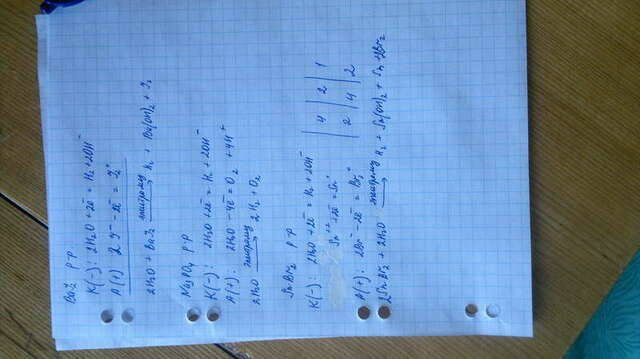 BaI₂ р-р
K(-): 2H₂O + 2ē = H₂ + 2OH⁻
A(+): 2I⁻ - 2ē = I₂⁰
2H₂O + BaI₂ электролиз → H₂ + Ba(OH)₂ + I₂
Na₃PO₄ р-р
K(-): 2H₂O + 2ē = H₂ + 2OH⁻
A(+): 2H₂O - 4ē = O₂ + 4H⁺
2H₂O электролиз → 2H₂ + O₂
SnBr₂ р-р
K(-): 2H₂O + 2ē = H₂ + 2OH⁻
Sn⁺² + 2ē = Sn⁰
| 4 | 2 | 1
2 | 4 | 2
A(+): 2Br⁻ - 2ē = Br₂⁰
2SnBr₂ + 2H₂O электролиз → H₂ + Sn(OH)₂ + Sn + 2Br₂